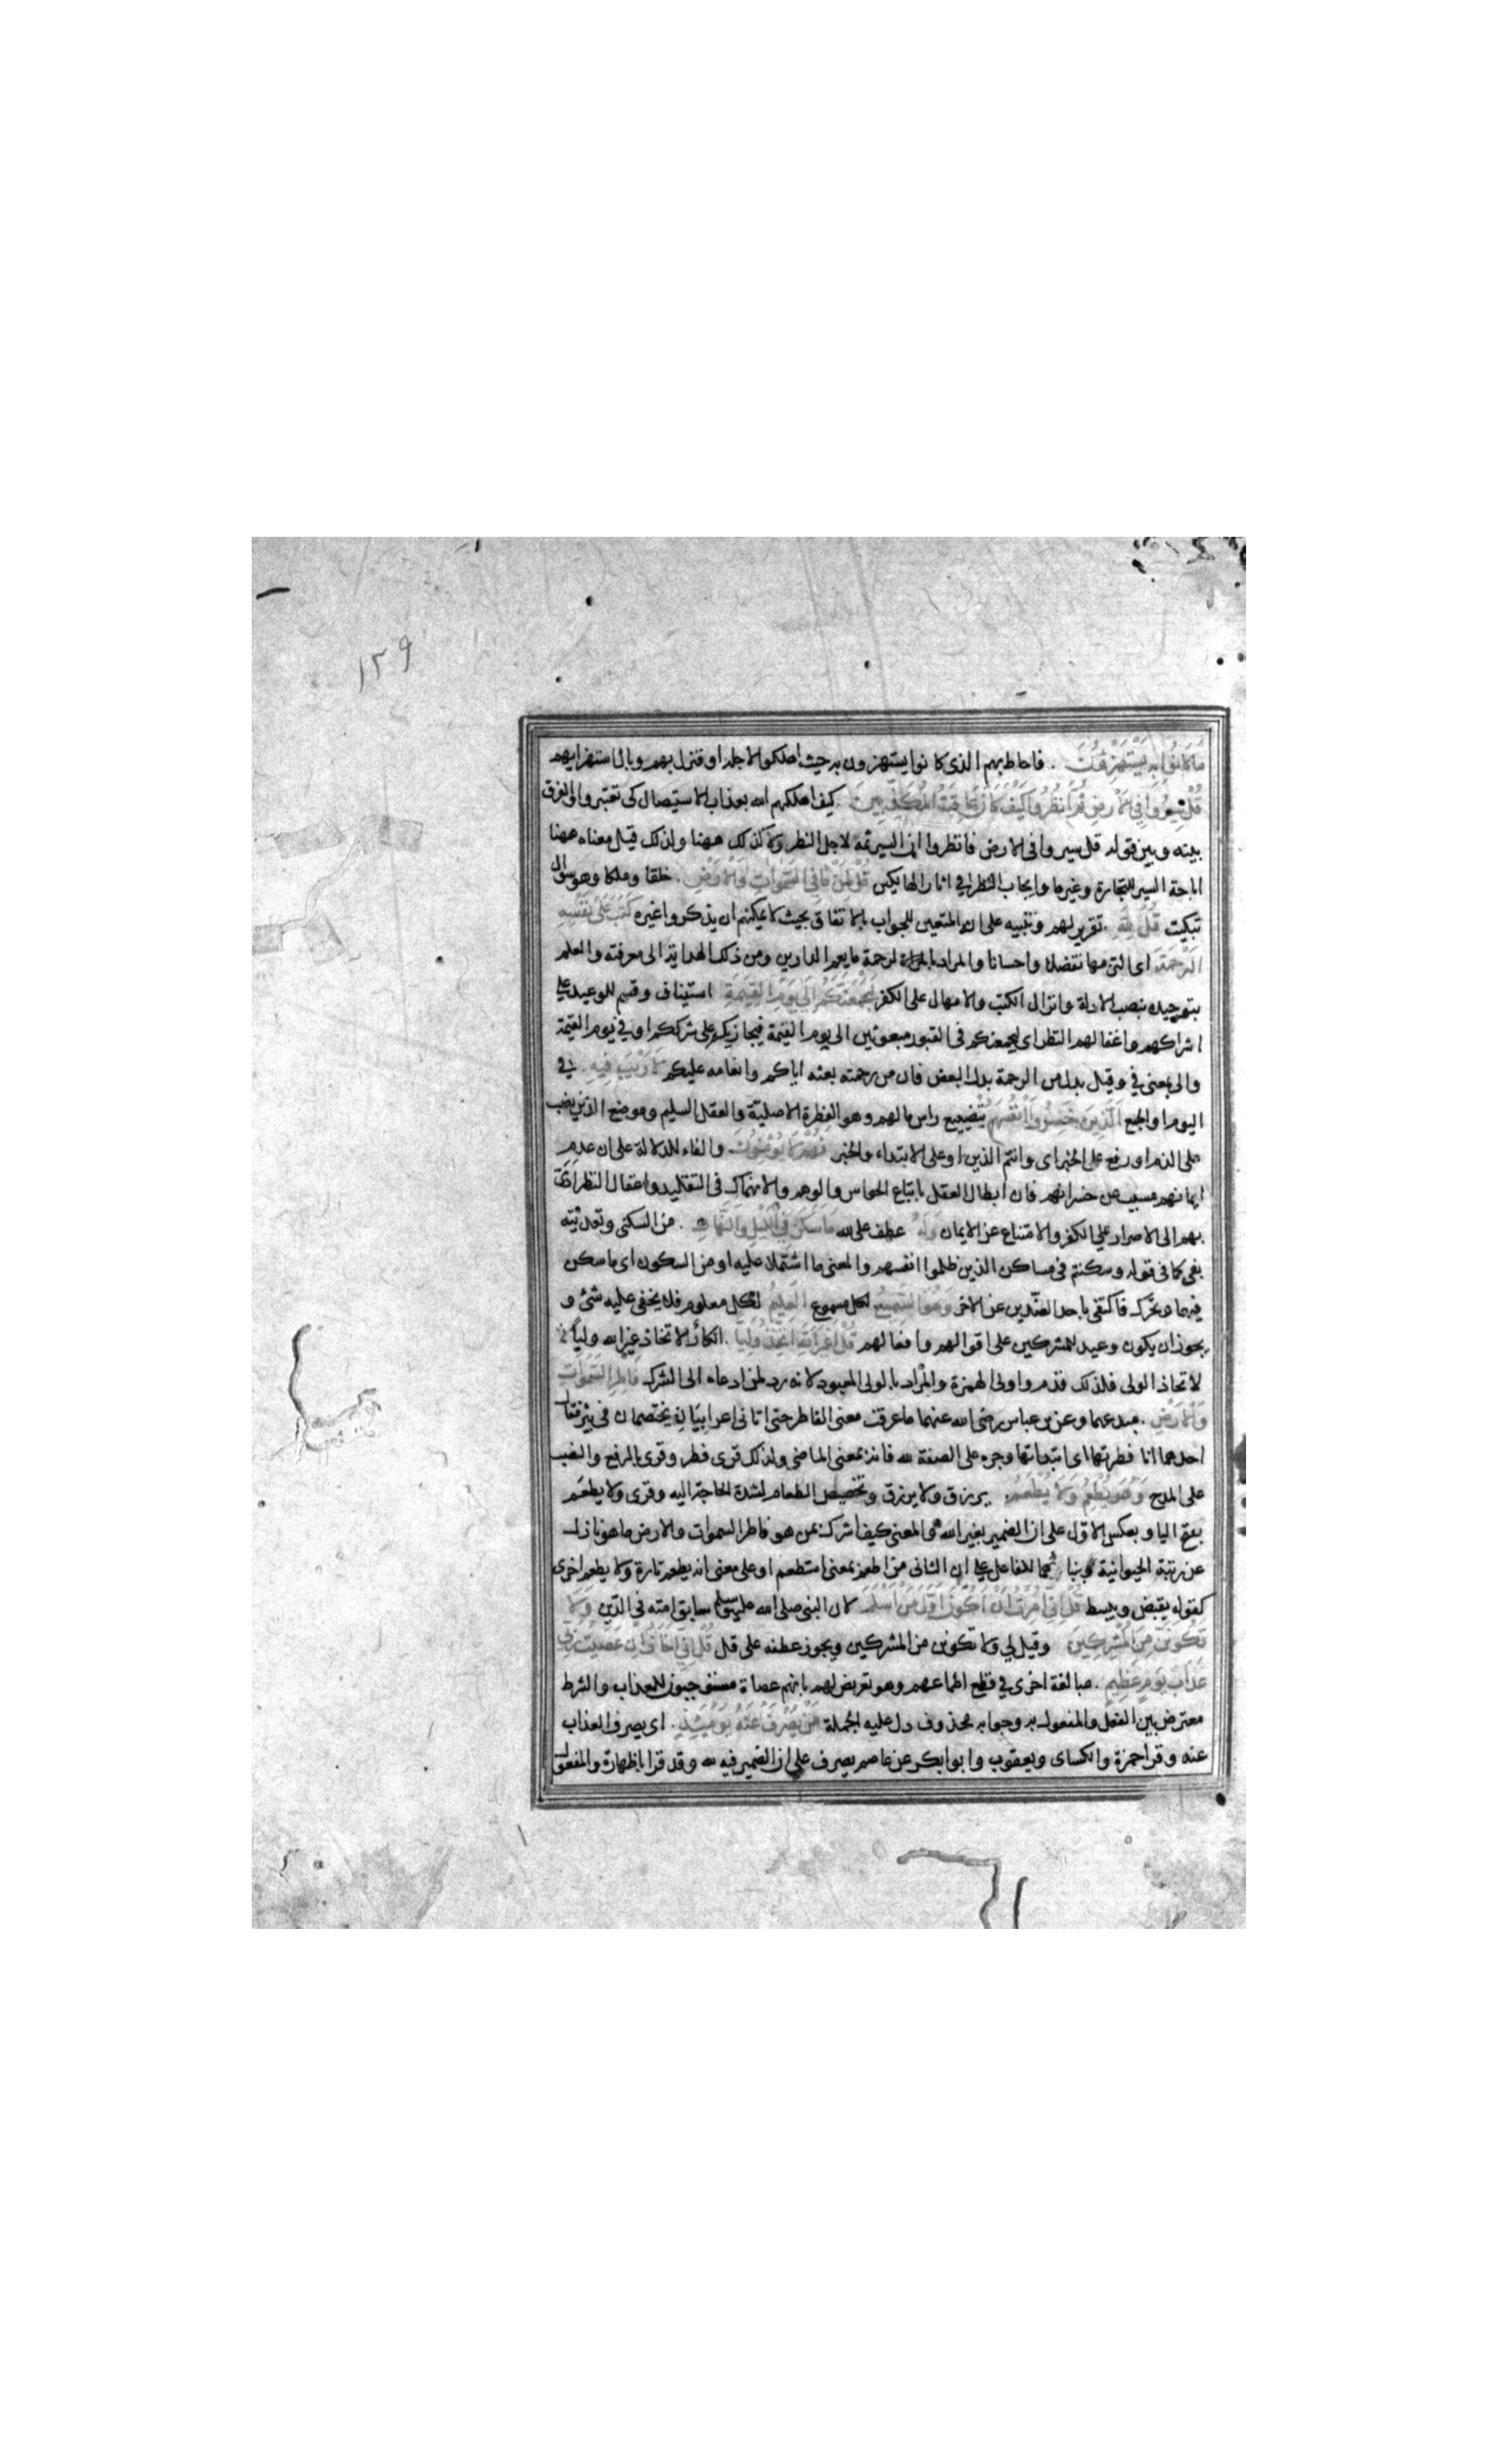 ١٢٩
مَا كَانُوا بِهِ يَسْتَهْزِؤُنَ . فاحاط بهم الذى كانوا يستهزون به حيث اهلكوا لاجله او فنزل بهم وبال استهزايهم
قُلْ سِيرُوا فِي الْأَرْضِ ثُمَّ انْظُرُوا كَيْفَ كَانَ عَاقِبَةُ الْمُكَذِّبِينَ . كيف اهلكهم الله بعذاب الاستيصال كى تعتبروا والفرق
بينه وبين قوله قل سيروا فى الارض فانظروا ان السير ثمه لاجل النظر ولا كذلك ههنا ولذلك قيل معناه ههنا
اباحة السير للتجارة وغيرها وايجاب النظر في اثار الهالكين قُلْ لِمَنْ مَا فِي السَّمٰوَاتِ وَالْأَرْضِ . خلقا وملكا وهو سوال
تبكيت قُلْ لِلّٰهِ . تقرير لهم وتنبيه على ان المتعين للجواب بالاتفاق بحيث لا يمكنهم ان يذكروا غيره كَتَبَ عَلَى نَفْسِهِ
الرَّحْمَةَ اى التزمها تفضلا واحسانا والمراد بالرحمة ما يعم الدارين ومن ذلك الهداية الى معرفته والعلم
بتوحيده بنصب الادلة وانزال الكتب والامهال على الكفر لَيَجْمَعَنَّكُمْ إِلَى يَوْمِ الْقِيٰمَةِ استيناف وقسم للوعيد على
اشراكهم واغفالهم النظر اى ليجمعنكم فى القبور مبعوثين الى يوم القيمة فيجازيكم على شرككم او في يوم القيمة
والى بمعنى في وقيل بدل من الرحمة بدل البعض فان من رحمته بعثه اياكم وانعامه عليكم لَا رَيْبَ فِيهِ . في
اليوم او الجمع الَّذِينَ خَسِرُوا أَنْفُسَهُمْ بتضييع راس مالهم وهو الفطرة الاصلية والعقل السليم وموضع الذين نصب
على الذم او رفع على الخبر اى وانتم الذين او على الابتداء والخبر فَهُمْ لَا يُؤْمِنُونَ . والفاء للدلالة على ان عدم
ايمانهم مسبب عن خسرانهم فان ابطال العقل باتباع الحواس والوهم والانهماك فى التقليد واغفال النظر ادى
بهم الى الاصرار على الكفر والامتناع عن الايمان وَلَهُ عطف على لله مَا سَكَنَ فِي اللَّيْلِ وَالنَّهَارِ . من السكنى وتعديته
بفى كما فى قوله وسكنتم فى مساكن الذين ظلموا انفسهم والمعنى ما اشتملا عليه او من السكون اى ما سكن
فيهما وتحرك فاكتفى باحد الضدين عن الاخر وَهُوَ السَّمِيعُ لكل مسموع الْعَلِيمُ لكل معلوم فلا يخفى عليه شئ و
يجوز ان يكون وعيدا للمشركين على اقوالهم وافعالهم قُلْ أَغَيْرَ اللّٰهِ أَتَّخِذُ وَلِيًّا . انكار لاتخاذ غير الله وليا لا
لاتخاذ الولى فلذلك قدم واولى الهمزة والمراد بالولى المعبود لانه رد لمن دعاه الى الشرك فَاطِرِ السَّمٰوَاتِ
وَالْأَرْضِ . مبدعهما وعن بن عباس رضى الله عنهما ما عرفت معنى الفاطر حتى اتانى اعرابيان يختصمان فى بئر فقال
احدهما انا فطرتها اى ابتداتها وجره على الصفة لله فانه بمعنى الماضى ولذلك قرى فطر وقرى بالرفع والنصب
على المدح وَهُوَ يُطْعِمُ وَلَا يُطْعَمُ . يرزق ولا يرزق وتخصيص الطعام لشدة الحاجة اليه وقرى ولا يطعم
بفتح اليا وبعكس الاول على ان الضمير لغير الله والمعنى كيف اشرك بمن هو فاطر السموات والارض ما هو نازل
عن رتبة الحيوانية وبنائهما للفاعل على ان الثانى من اطعم بمعنى استطعم او على معنى انه يطعم تارة ولا يطعم اخرى
كقوله يقبض ويبسط قُلْ إِنِّي أُمِرْتُ أَنْ أَكُونَ أَوَّلَ مَنْ أَسْلَمَ لان النبى صلى الله عليه وسلم سابق امته في الدين وَلَا
تَكُونَنَّ مِنَ الْمُشْرِكِينَ وقيل لي ولا تكونن من المشركين ويجوز عطفه على قل قُلْ إِنِّي أَخَافُ إِنْ عَصَيْتُ رَبِّي
عَذَابَ يَوْمٍ عَظِيمٍ . مبالغة اخرى في قطع اطماعهم وهو تعريض لهم بانهم عصاة مستوجبون للعذاب والشرط
معترض بين الفعل والمفعول به وجوابه محذوف دل عليه الجملة مَنْ يُصْرَفْ عَنْهُ يَوْمَئِذٍ . اى يصرف العذاب
عنه وقرا حمزة والكساى ويعقوب وابو ابكر عن عاصم يصرف على ان الضمير فيه لله وقد قرا باظهاره والمفعول